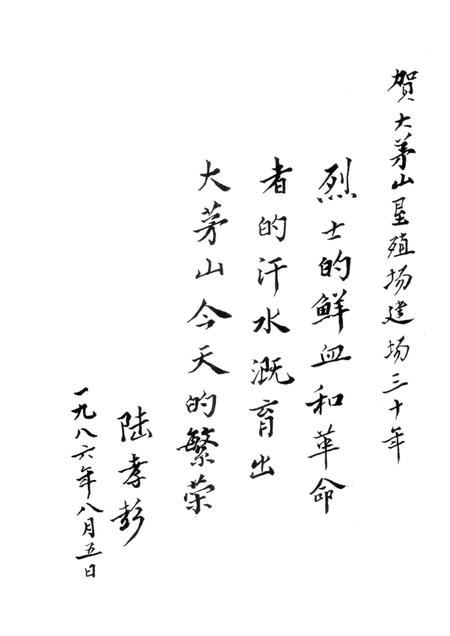 賀大茅山垦殖场建场三十年
烈士的鲜血和革命
者的汗水溉育出
大茅山今天的繁荣
陆孝彭
一九八六年八月五日